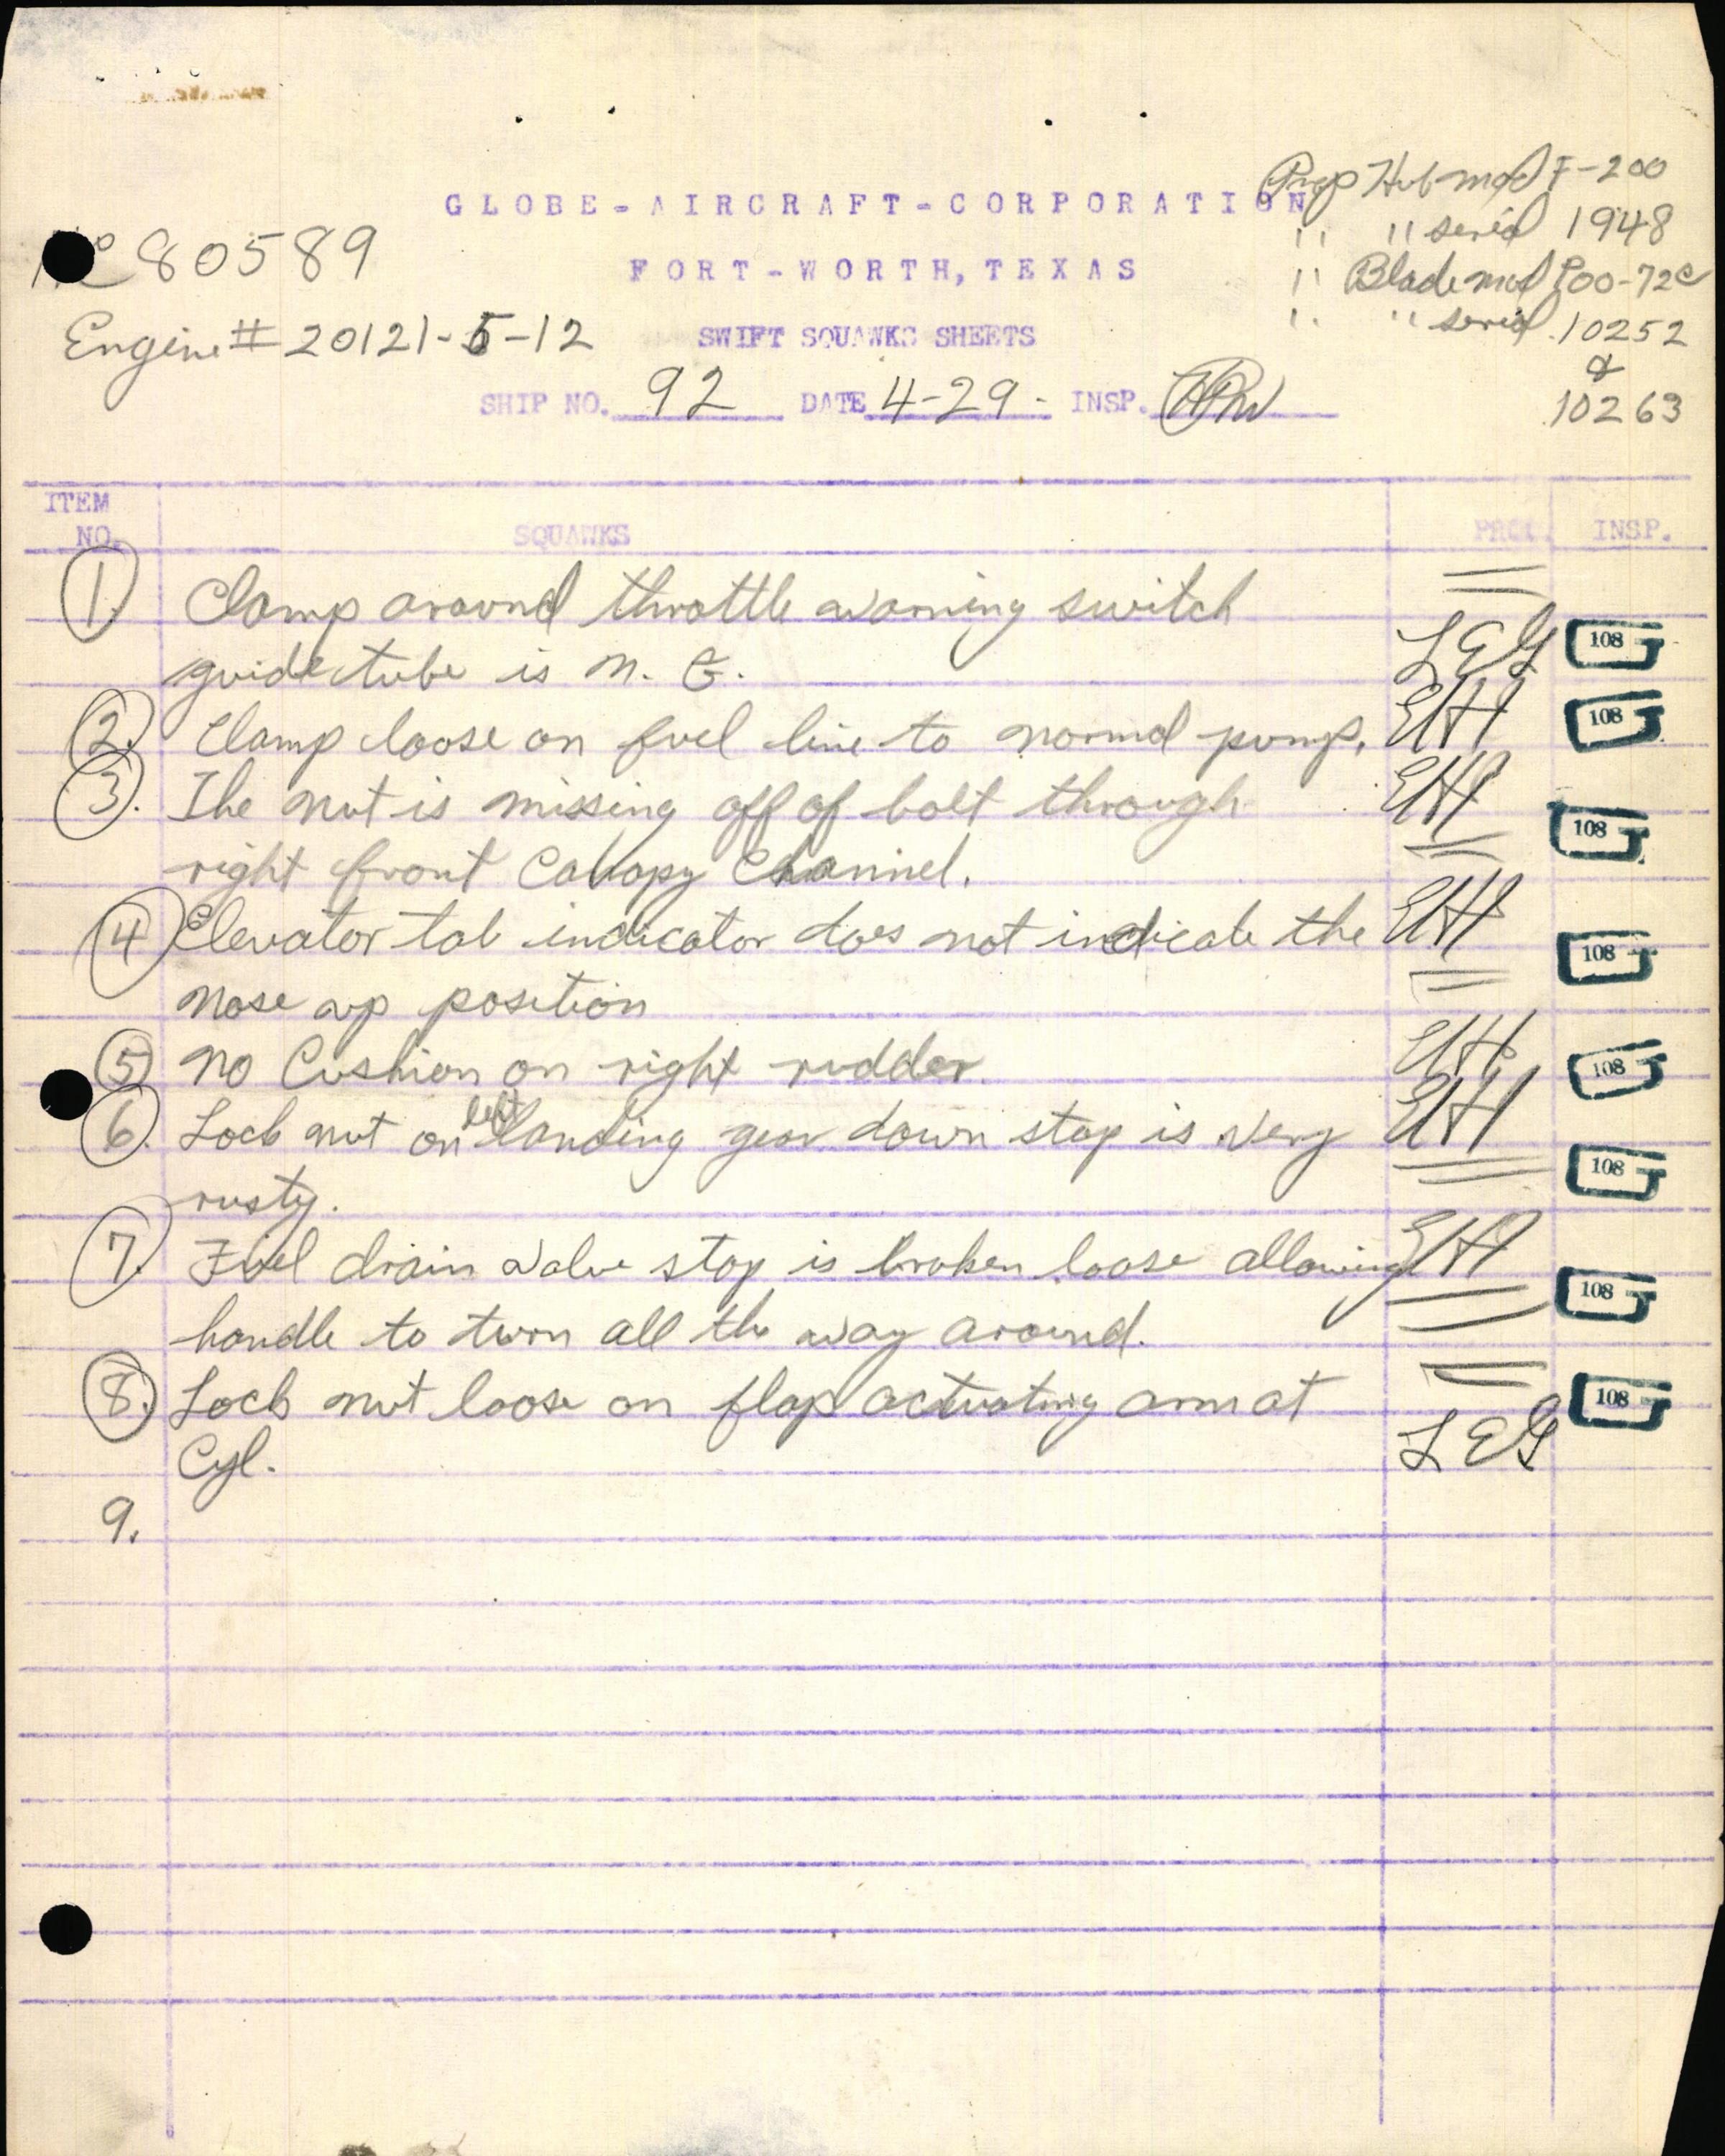 Prop Hub mod F-200
GLOBE-AIRCRAFT-CORPORATION
" " serial 1948
NC 80589
FORT-WORTH, TEXAS
" Blade mod P00-72C
Engine # 20121-5-12
SWIFT SQUAWKS SHEETS
" " serial 10252
&
10263
SHIP NO. 92 DATE 4-29- INSP.
ITEM
NO. SQUAWKS PROD. INSP.
1. Clamp around throttle warning switch
guide tube is N. G. LEG 108
2. Clamp loose on fuel line to normal pump. EHH 108
3. The nut is missing off of bolt through EHH 108
right front Canopy Channel.
4 Elevator tab indicator does not indicate the EHH 108
Nose up position
5 No Cushion on right rudder. EHH 108
6. Lock nut on left landing gear down stop is very EHH 108
rusty.
7. Fuel drain valve stop is broken loose allowing EHH 108
handle to turn all the way around.
8. Lock nut loose on flap actuating arm at 108
Cyl. LEG
9.